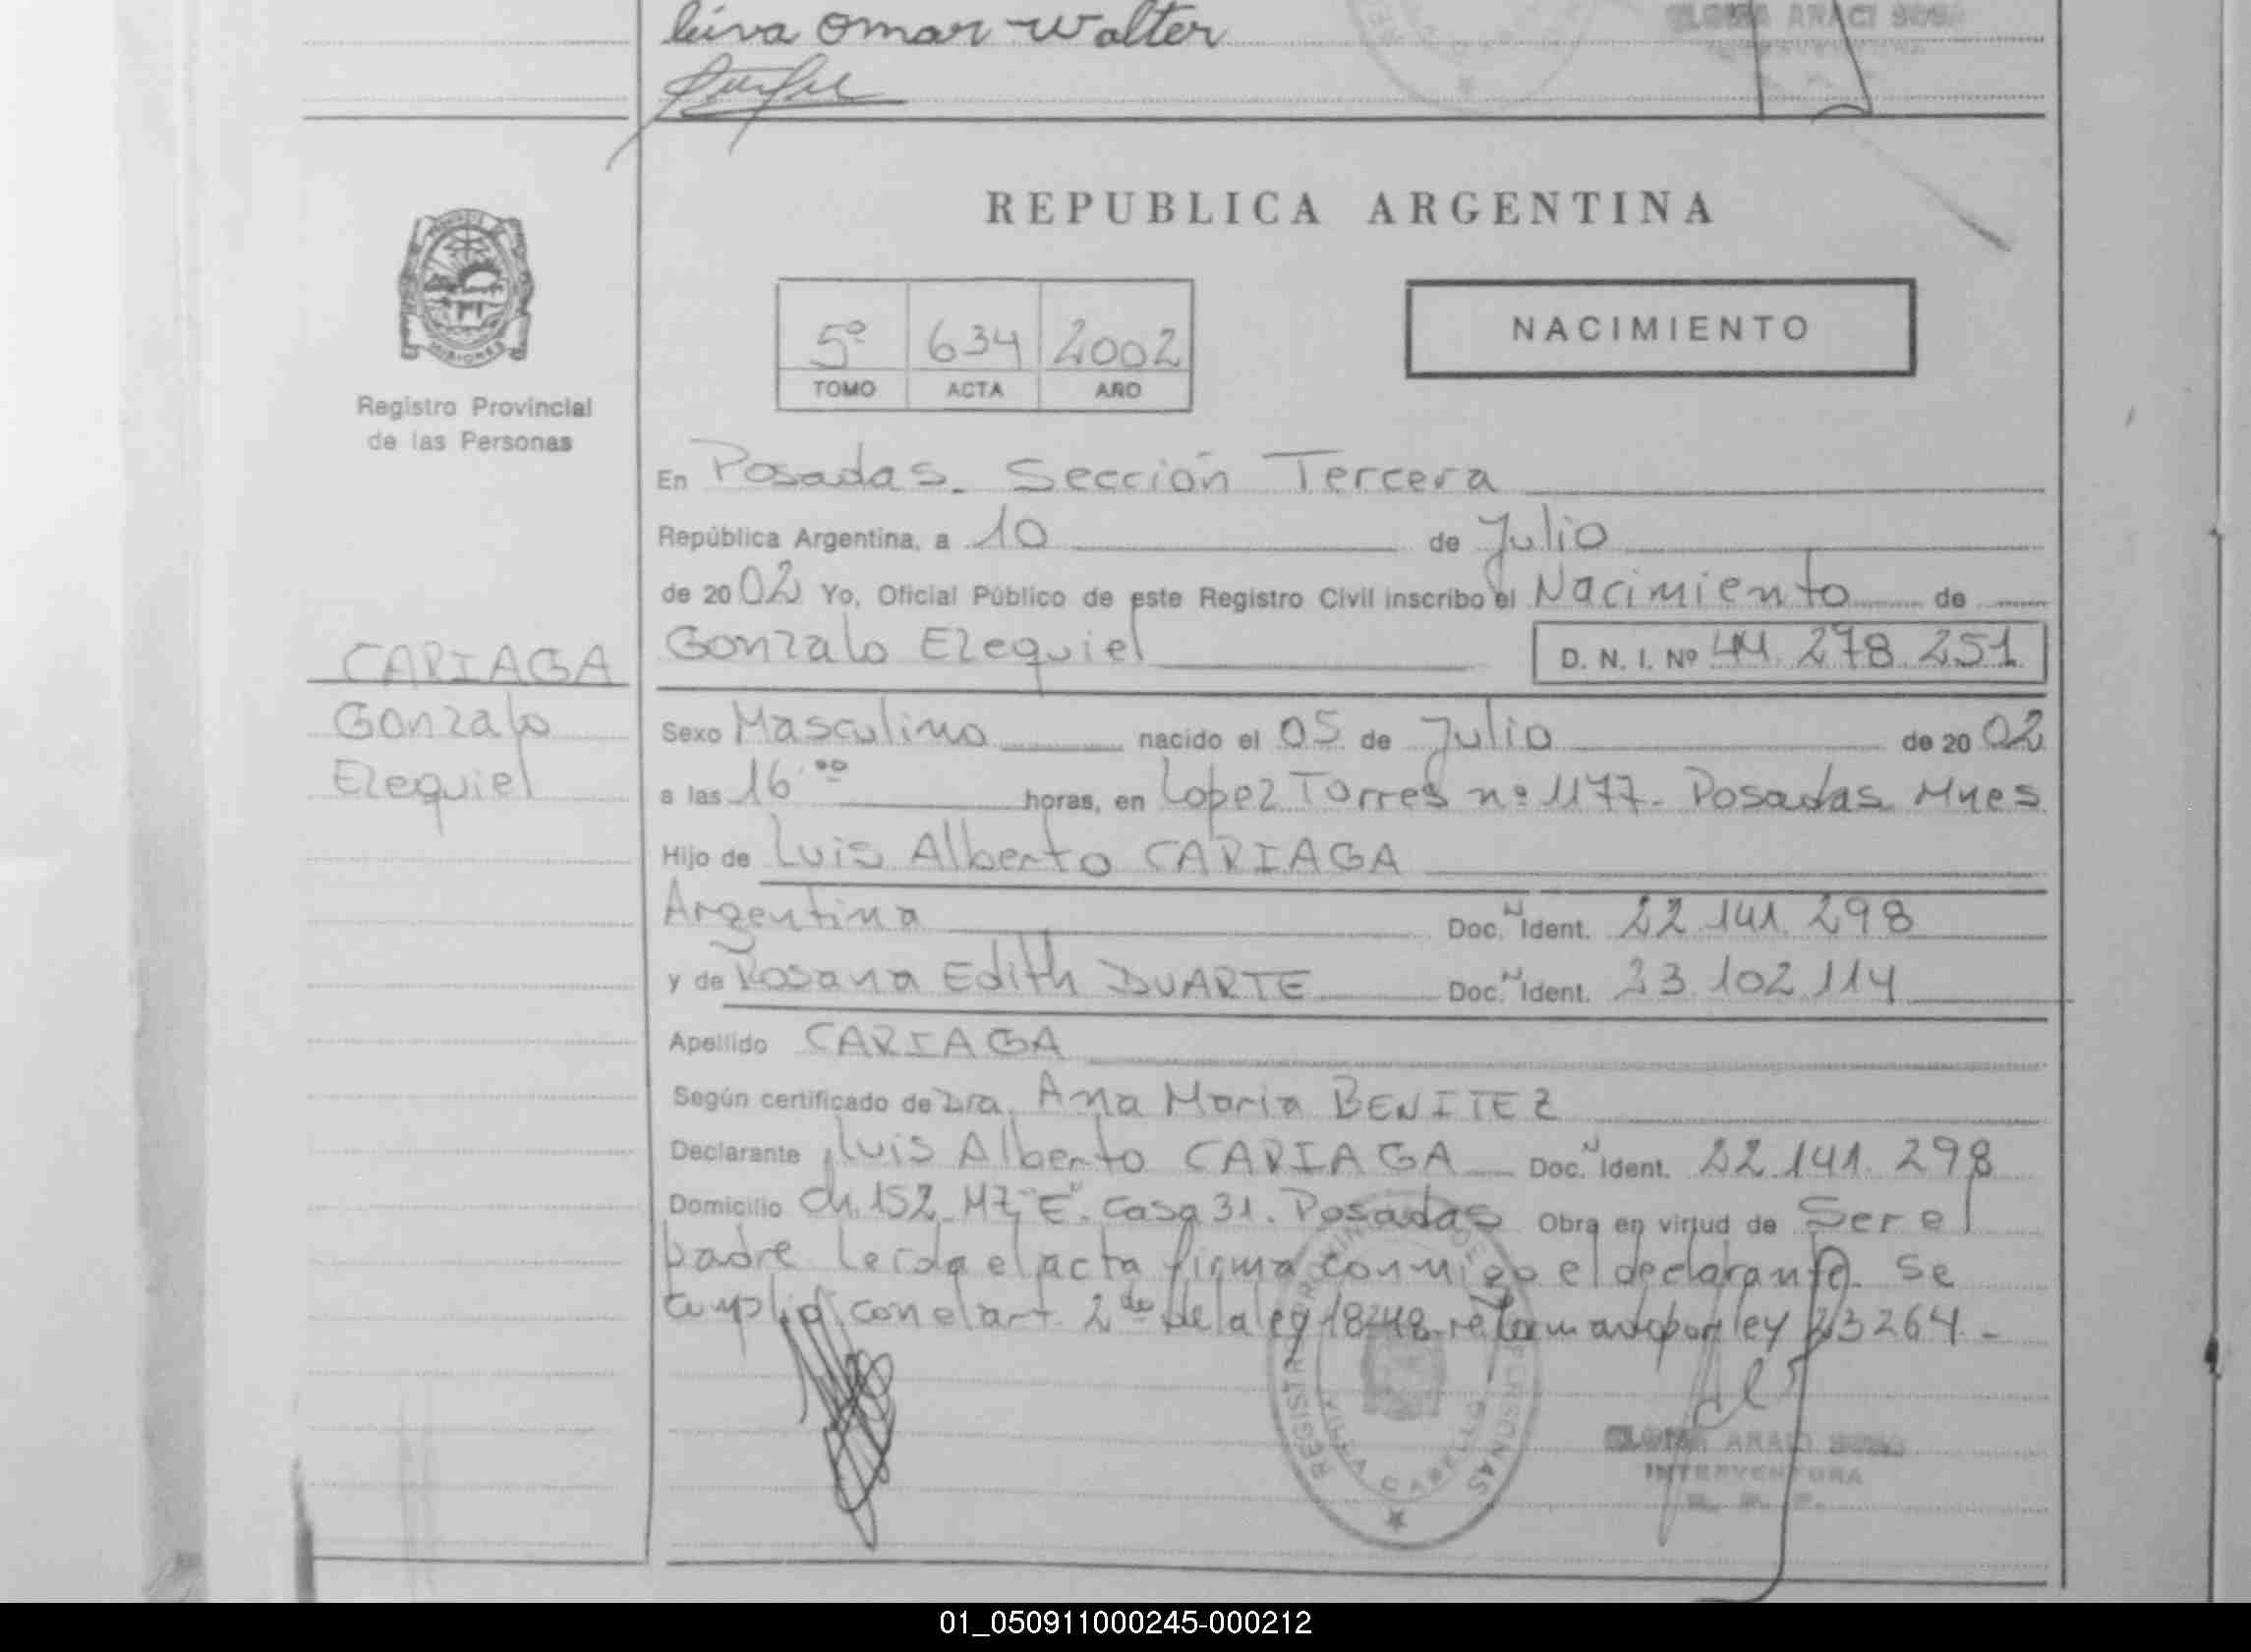 leiva omar walter
REPUBLICA ARGENTINA
MISIONES
5º 634 2002
TOMO ACTA AÑO
NACIMIENTO
Registro Provincial
de las Personas
En Posadas. Sección Tercera
República Argentina, a 10 de Julio
de 2002 Yo, Oficial Público de este Registro Civil inscribo el Nacimiento de
Gonzalo Ezequiel D. N. I. Nº 44. 278. 251
CARIAGA
Gonzalo
Ezequiel
Sexo Masculino nacido el 05 de Julio de 2002
a las 16 ºº horas, en Lopez Torres nº 1177. Posadas Mnes
Hijo de Luis Alberto CARIAGA
Argentina Doc. N Ident. 22 141. 298
y de Rosana Edith DUARTE Doc. N Ident. 23. 102. 114
Apellido CARIAGA
Según certificado de Dra. Ana Maria BENITEZ
Declarante Luis Alberto CARIAGA Doc. N Ident. 22.141. 298
Domicilio Ch. 152. MZ "E". Casa 31. Posadas Obra en virtud de Ser el
padre leida el acta firma conmigo el declarante. Se
cumplio con el art. 2do de la ley 18248 reformado por ley 23264.-
REGISTRO PROVINCIAL DE LAS PERSONAS
VILLA CABELLO
ARACI
INTERVENTORA
01_050911000245-000212